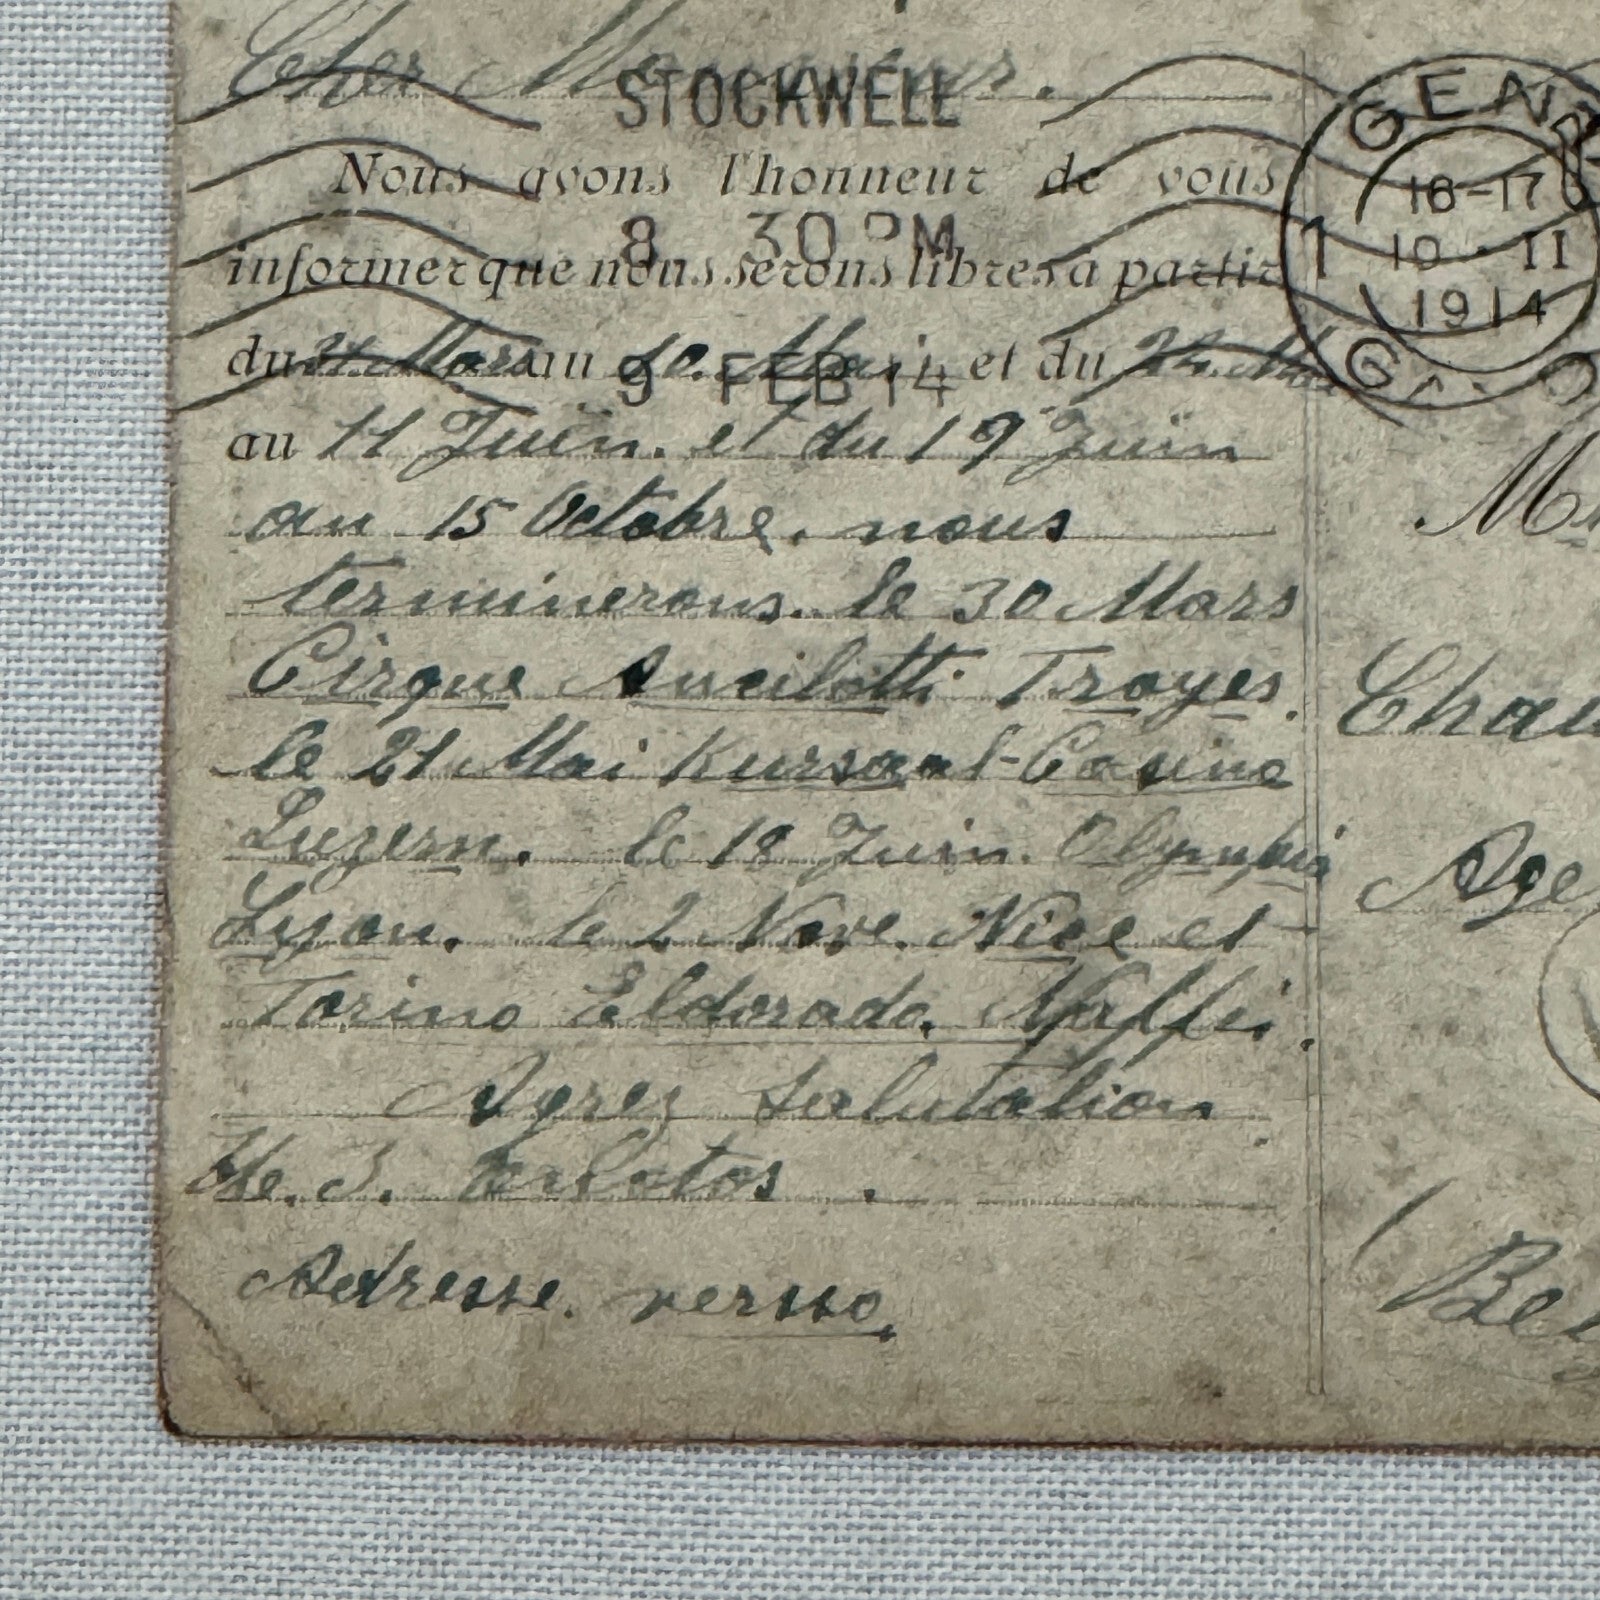 Cher Monsieur.
STOCKWELL
8 30 PM
9 FEB 14
Nous avons l'honneur de vous
informer que nous serons libres à partir
du 31. Mars au 10. Mai et du 22. Mai
au 11 Juin. et du 19 Juin
au 15 Octobre. nous
terminerons. le 30 Mars
Cirque Ancilotti Troyes.
le 21 Mai Kursaal-Casino
Luzern. le 18 Juin. Olympia
Lyon. le 2 Nove. Nice et
Torino Eldorado. Maffei.
Agrez Salutation
Carlotos.
Adresse. versso.
GEN
16-17
1 10-II
1914
GA
Chau
Age
Bel